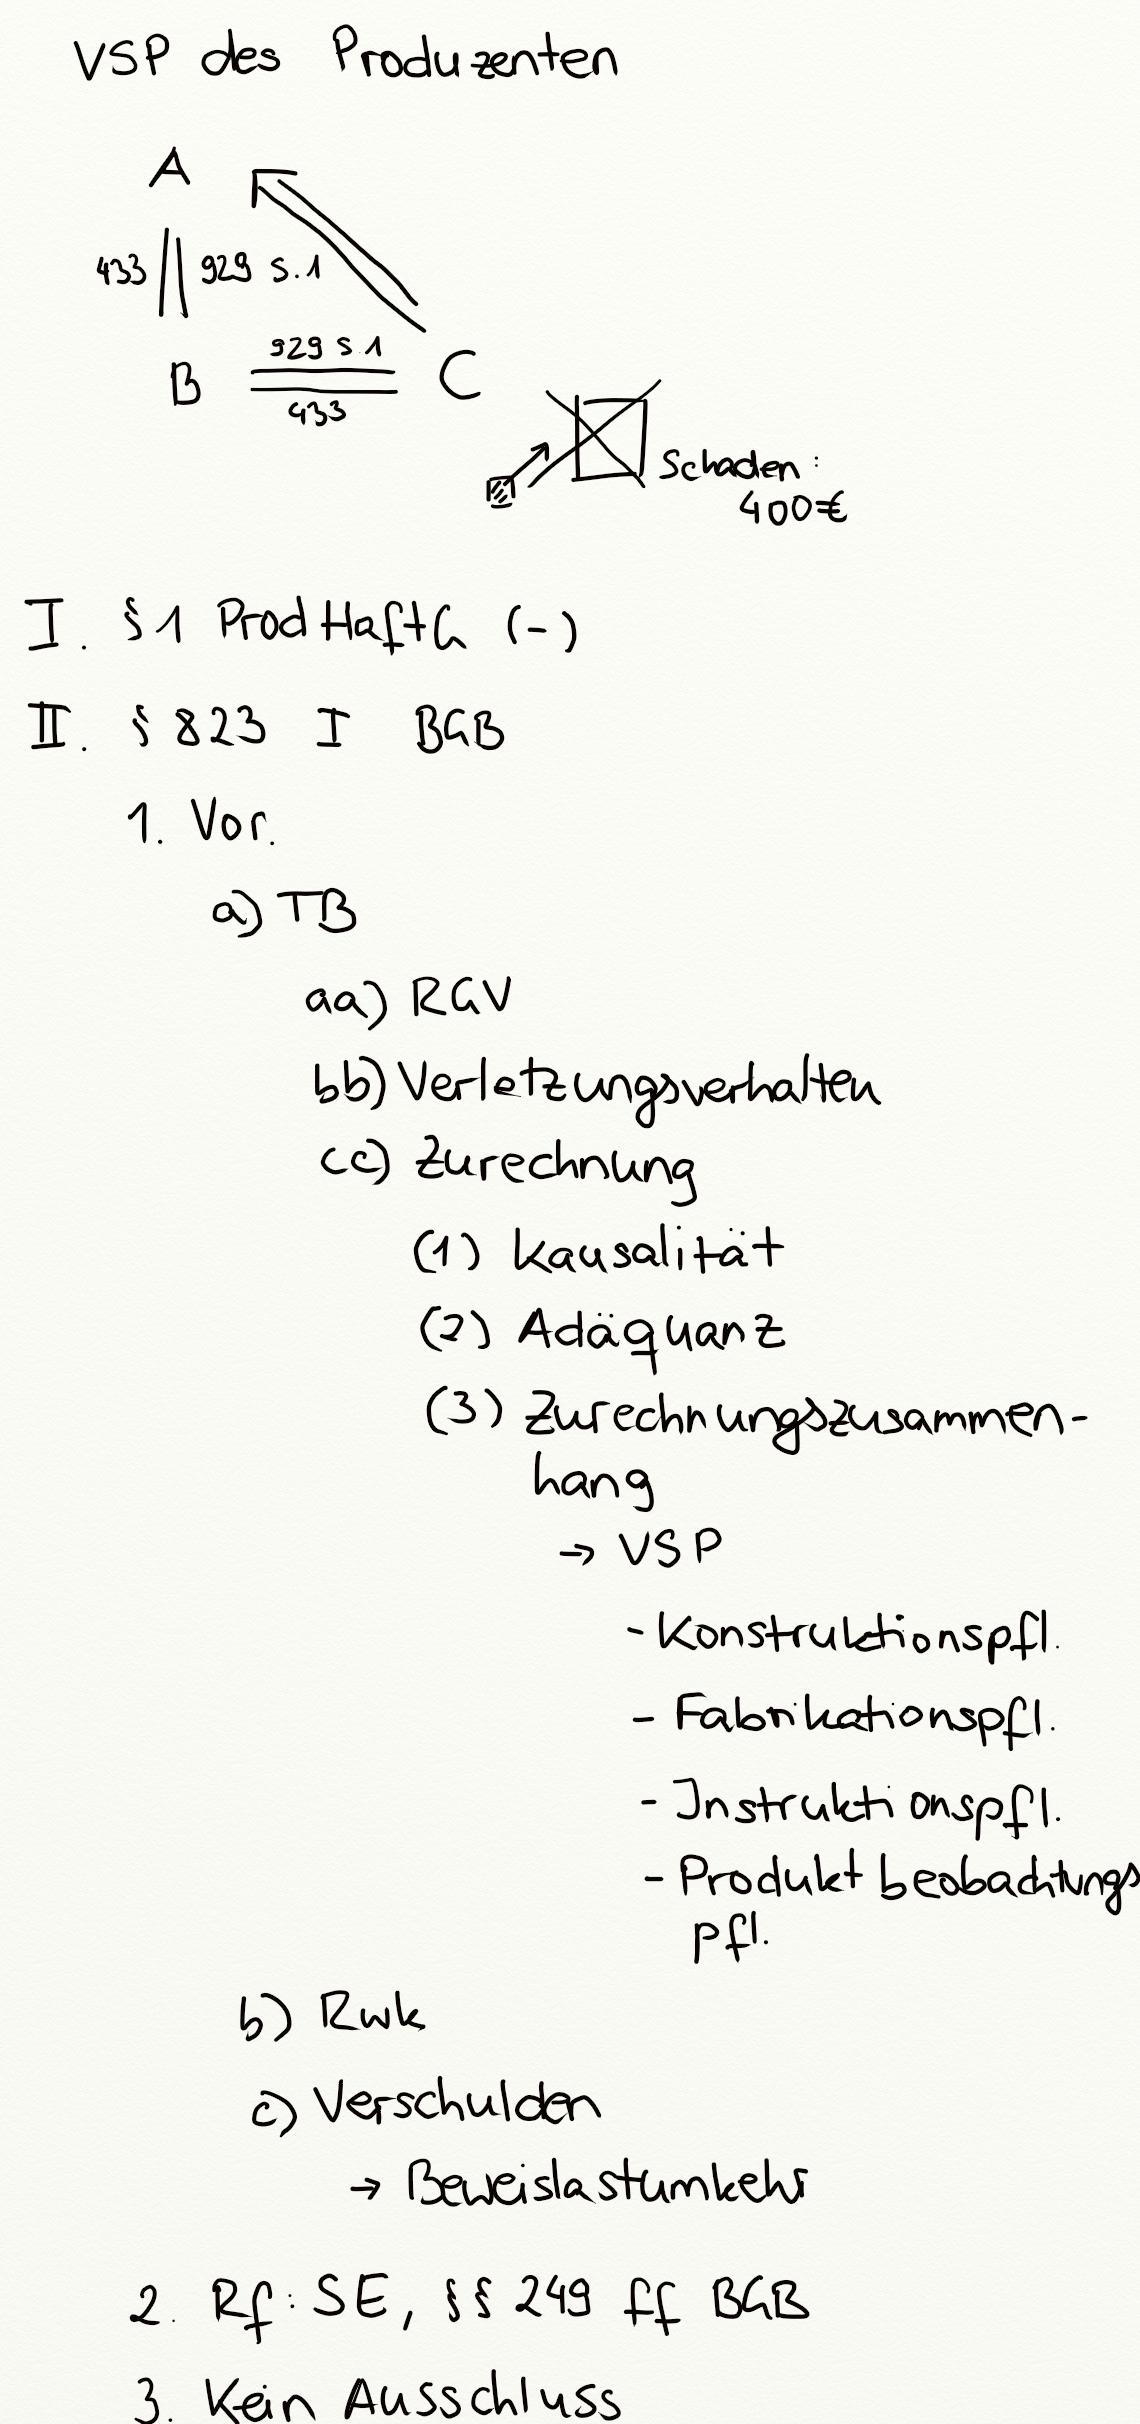 VSP des Produzenten
A
433 929 S.1
929 S.1
B C
433
Schaden:
400€
I. § 1 ProdHaftG (-)
II. § 823 I BGB
1. Vor.
a) TB
aa) RGV
bb) Verletzungsverhalten
cc) Zurechnung
(1) Kausalität
(2) Adäquanz
(3) Zurechnungszusammen-
hang
→ VSP
- Konstruktionspfl.
- Fabrikationspfl.
- Instruktionspfl.
- Produktbeobachtungs
pfl.
b) Rwk
c) Verschulden
→ Beweislastumkehr
2. Rf: SE, §§ 249 ff BGB
3. Kein Ausschluss